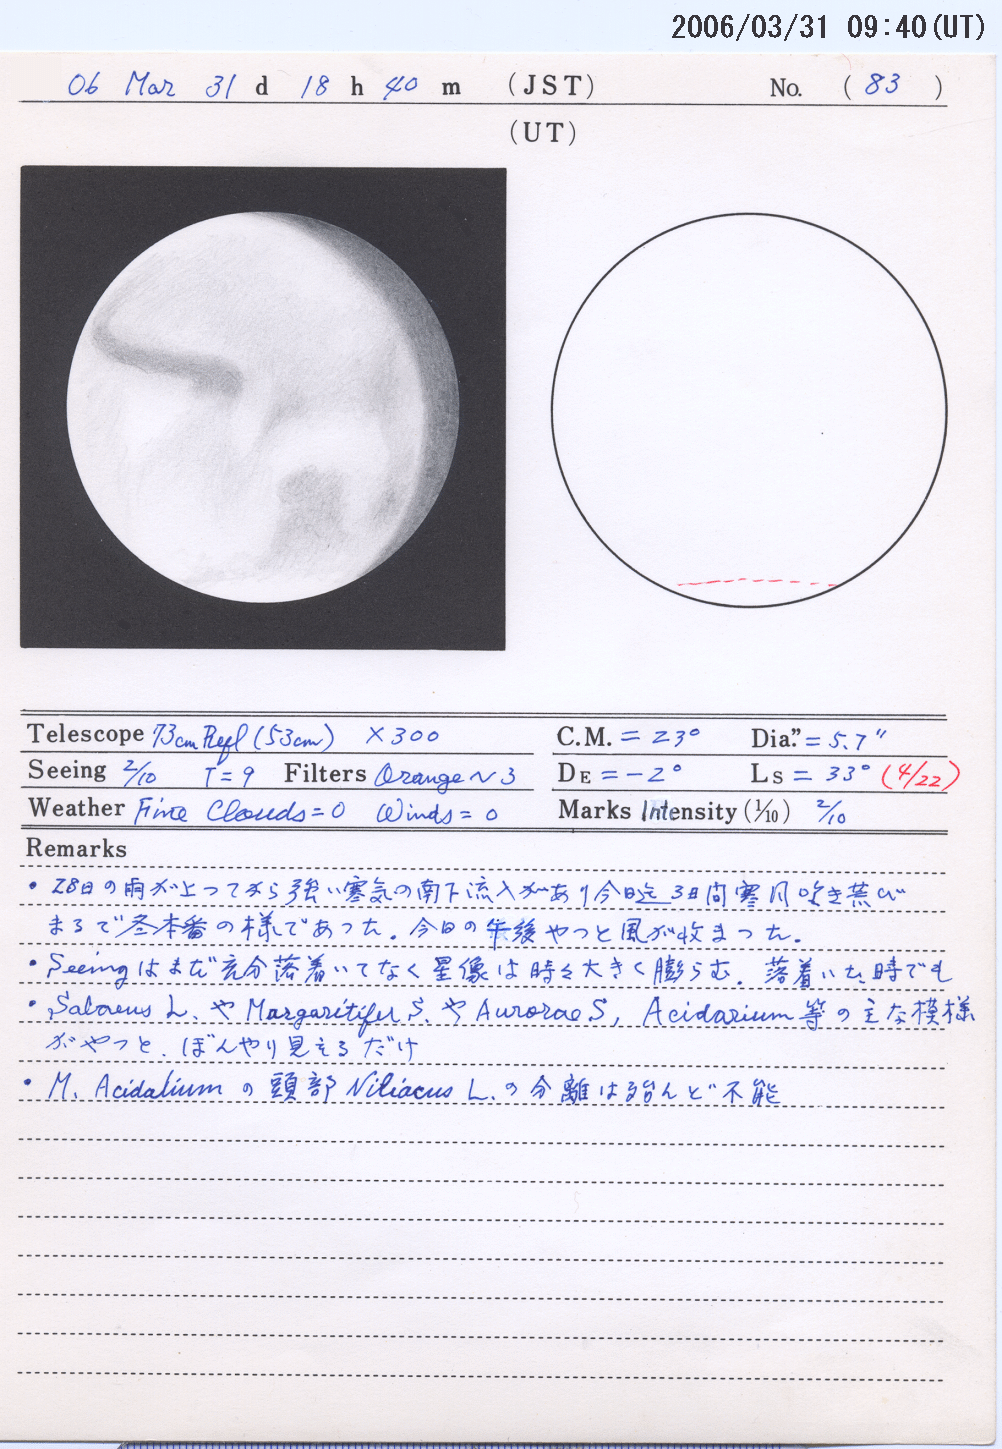 2006/03/31 09:40(UT)
06 Mar 31 d 18 h 40 m (JST) No. (83)
(UT)
Telescope 73cm Refl (53cm) ×300
C.M. = 23° Dia." = 5.7"
Seeing 2/10 T=9 Filters Orange~3
DE = -2° Ls = 33° (4/22)
Weather Fine Clouds=0 Winds=0
Marks Intensity (1/10) 2/10
Remarks
・28日の雨が上ってから強い寒気の南下流入があり今日迄3日間寒風吹き荒び
まるで冬本番の様であった。今日の午後やっと風が收まった。
・Seeingはまだ充分落着いてなく星像は時々大きく膨らむ. 落着いた時でも
・Sabaeus L. や Margaritifer S. や Aurorae S, Acidarium 等の主な模様
がやっと、ぼんやり見えるだけ
・M. Acidalium の頭部 Niliacus L. の分離は殆んど不能